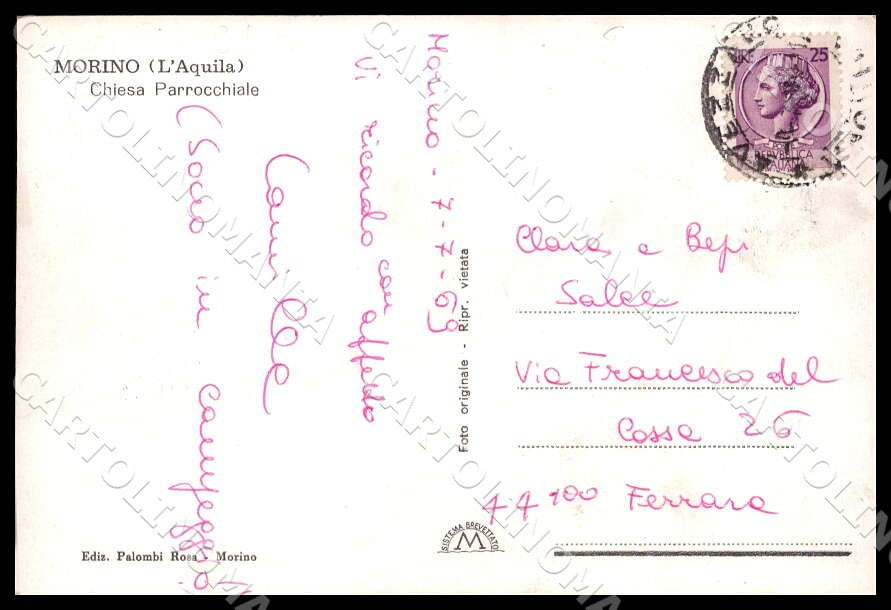 MORINO (L'Aquila)
Chiesa Parrocchiale
Morino - 7-7-69
Vi ricordo con affetto
(Sono in campeggio)
25
REPVBBLICA
ITALIANA
AVEZZANO
Clara e Bepi
Salce
Via Francesco del
Cossa 26
44100 Ferrara
Foto originale - Ripr. vietata
SISTEMA BREVETTATO
M
Ediz. Palombi Rosa - Morino
CARTOLINOMANIA
CARTOLINOMANIA
CARTOLINOMANIA
CARTOLINOMANIA
CARTOLINOMANIA
CARTOLINOMANIA